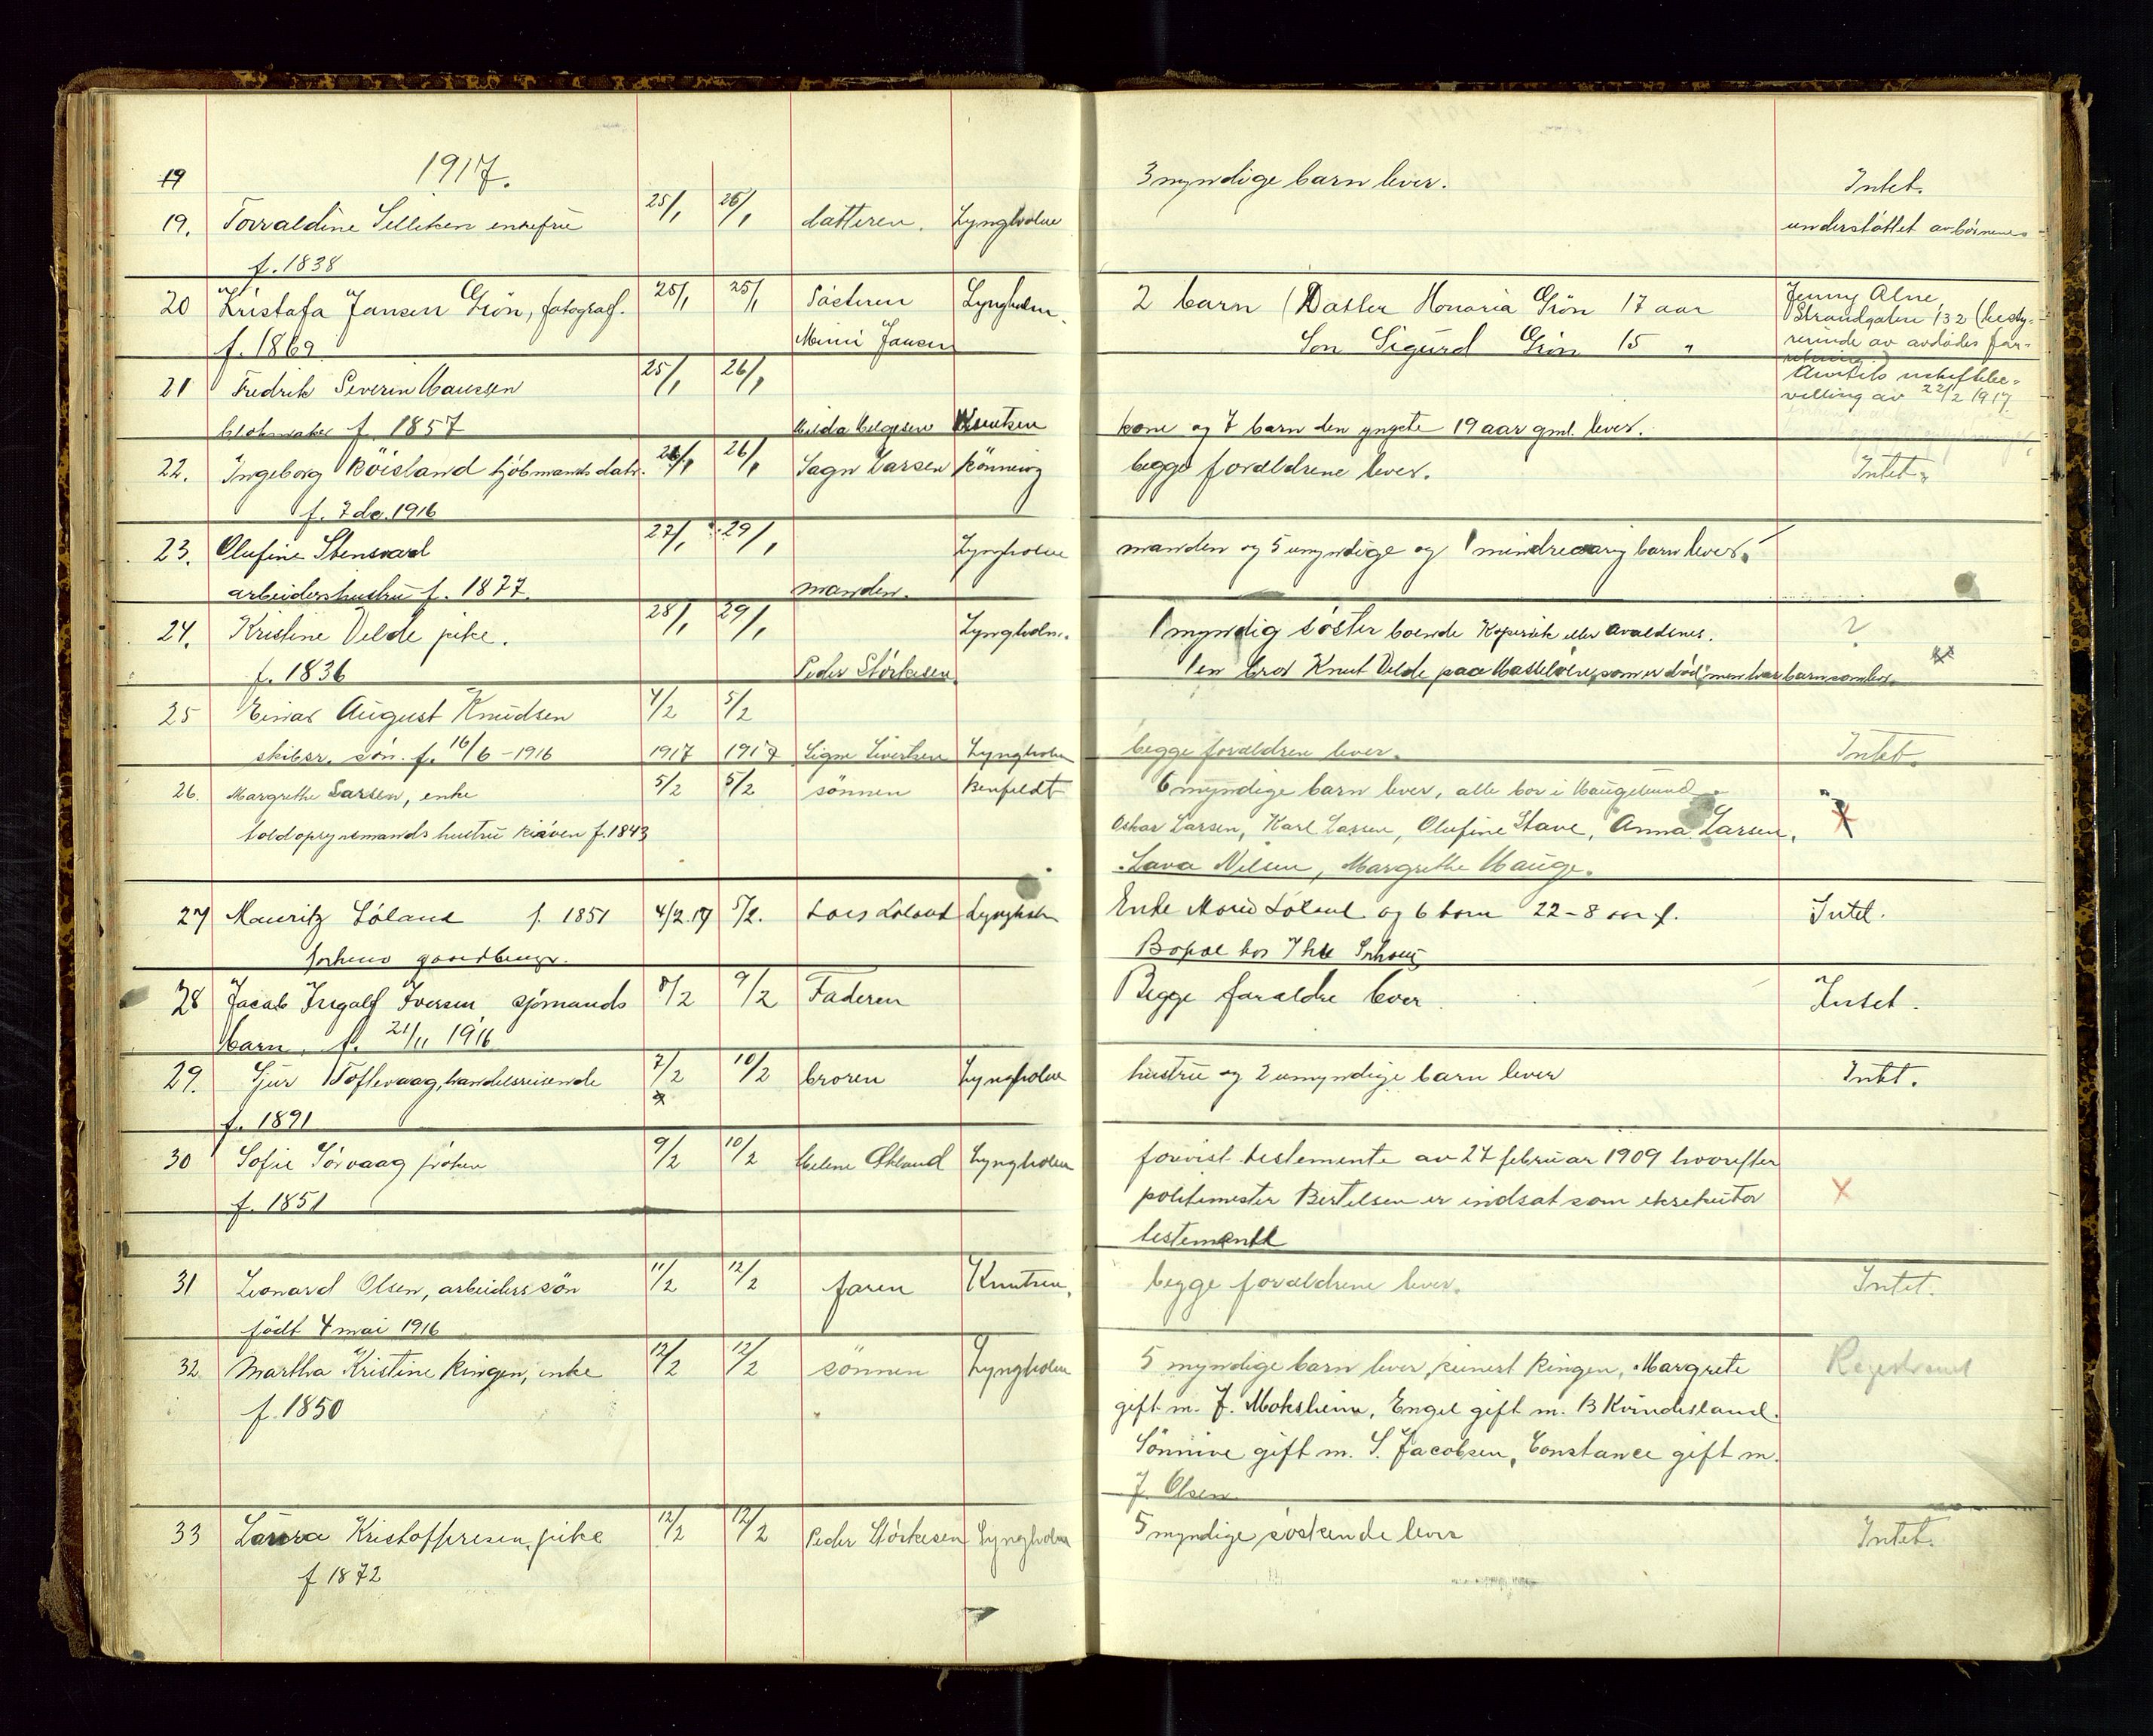 19 1917. 3 myndige barn lever. Intet.
19. Torvaldine Selliken enkefru 25/1 26/1 datteren. Lyngholm understøttet av børnene
f. 1838
20 Kristofa Jansen Grön, fotograf. 25/1 25/1 Søsteren Lyngholm. 2 barn (Datter Honoria Grön 17 aar Jenny Alne
f. 1869 Mimi Jansen Son Sigurd Grön 15 " Strandgaten 132 (besty-
rerinde av avdødes for-
retning.)
21 Fredrik Severin Hanssen 25/1 26/1 uskiftebe-
blokmaker f. 1857 Hilda Helgesen Knutsen kone og 7 barn den yngste 19 aar gml. lever. villing av 22/2 1917.
22. Ingeborg Röisland kjöbmands datr. 26/1 26/1 Sagn Larsen Rönnevig begge forældrene lever. Intet.
f. 7 de. 1916
23. Olufine Stensvard 27/1 29/1 Lyngholm manden og 5 umyndige og 1 mindreaarig barn lever.
arbeidershustru f. 1877. manden.
24. Kristine Velde pike. 28/1 29/1 Lyngholm. 1 myndig søster boende Kopervik eller Avaldsnes. 2
f. 1836 Peder Störkesen 1 en bror Knut Velde paa som er død, men har barn som lever.
25 Einar August Knudsen 4/2 5/2
skibsr. søn. f. 16/6 - 1916 1917 1917 Signe Sivertsen Lyngholm begge forældren lever. Intet.
26. Margrethe Larsen, enke 5/2 5/2 sönnen Benfeldt 6 myndige barn lever, alle bor i Haugesund.
toldopsynsmands hustru f. 1843 Oskar Larsen, Karl Larsen, Olufine Stave, Anna Larsen. X
Lava Nilsen, Margrethe Hauge.
27 Mauritz Löland f. 1851 4/2.17 5/2. Lars Löland Lyngholm Enke Løland og 6 barn 22-8 aar f. Intet.
forhenv gaardbruger. Bopæl hos
28 Jacob Ingolf Iversen sjömands 8/2 9/2 Faderen Begge foraldre lever. Intet.
barn. f. 21/11 1916
29. Sjur Toftevaag, handelsreisende 7/2 10/2 broren Lyngholm hustru og 2 umyndige barn lever Intet.
f. 1891
30 Sofie Sörvaag fröken 9/2 10/2 Helene Økland Lyngholm forevist testemente av 27 februar 1909 hvorefter
f. 1851 politimester Bertelsen er indsat som eksekutor X
testamenti
31 Leonard Olsen, arbeiderssön 11/2 12/2 faren Knutsen. begge forældrene lever. Intet.
født 4 mai 1916
32 Martha Kristine Ringen, enke 12/2 12/2 sönnen Lyngholm 5 myndige barn lever, Reinert Ringen, Margrete Registreret
f. 1850 gift m. J. Moksheim, Engel gift m. B Kvindesland.
Sönnive gift m. S. Jacobsen, Constance gift m.
J. Olsen
33 Laura Kristoffersen, pike 12/2 12/2 Peder Störkesen Lyngholm 5 myndige søskende lever Intet.
f 1872